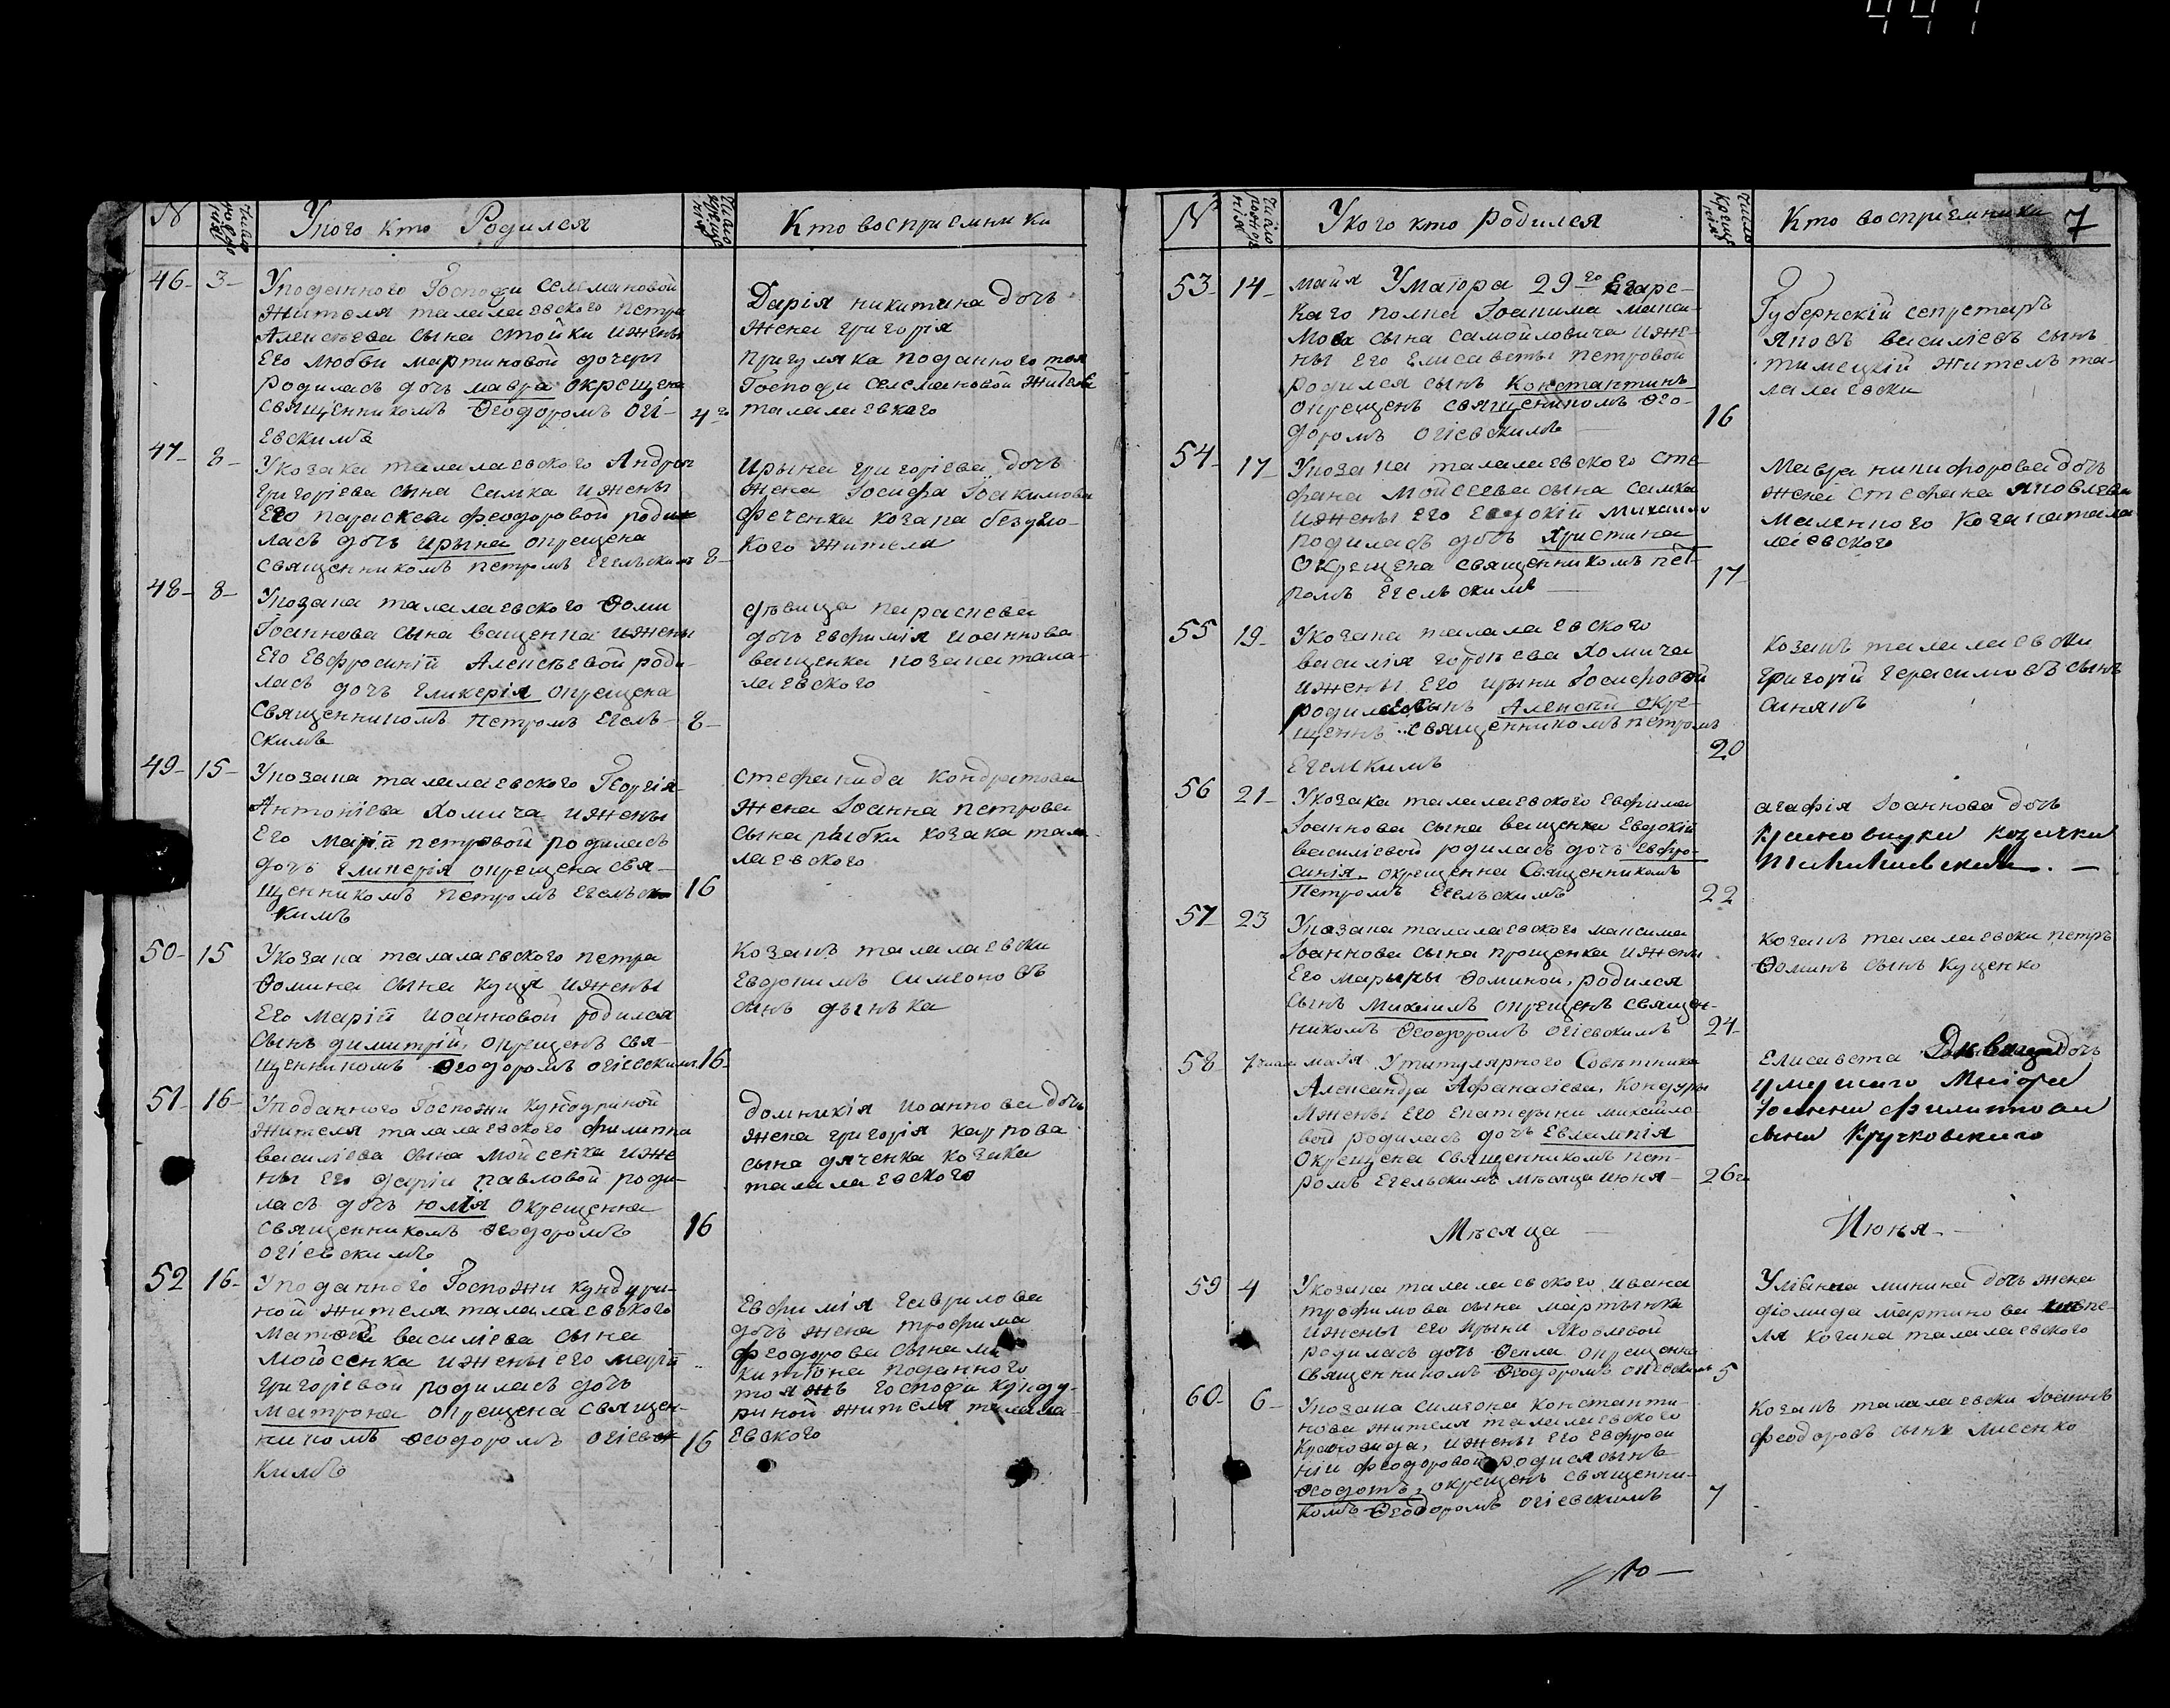 447
N
Число рожденія
Уκого кто Родился
Число крещенія
Кто восприемники
46 - 3 -
Уподанного Госпожи Селемановой
жителя талалаевского Петра
Алексѣева сына стойки ижены
Его Любви мартиновой дочеры
родиласъ дочъ мавра окрещена
священникомъ Ѳеодоромъ Огі-
евскимъ
4го
Дарія никитина дочъ
жена григорія
пригуляка поданного тояжъ
Госпожи Селемановой жителя
талалаевского
47 - 8 -
Укозака талалаевского Андрея
григоріева сына Самка ижены
Его параскеви феодоровой роди
ласъ дочъ Ирына окрещена
священникомъ петромъ Егельскимъ
8 -
Ирына григоріева дочъ
жена Іосифа Іоакимова
феченки козака бездро-
кого жителя
48 - 8 -
Укозака талалаевского Ѳоми
Іоаннова сына ващенка ижены
Его Евфросиній Алексѣевой роди-
ласъ дочъ гликерія окрещена
Священникомъ петромъ Егель-
скимъ
8 -
дѣвица параскева
дочъ евфимія иоаннова
ващенка козака тала-
лаевского
49 - 15 -
Укозака талалаевского Георгія
Антоніева Хомича ижены
Его Марій петровой родиласъ
дочъ гликерія окрещена свя-
щенникомъ петромъ Егельс
кимъ
16
стефанида Кондратова
жена Іоанна петрова
сына рыбки козака тала-
лаевского
50 - 15
Укозака талалаевского петра
Ѳомина сына куця ижены
Его Марій иоанновой родился
сынъ димитрій, окрещенъ свя-
щенникомъ Ѳеодоромъ огіевскимъ
16 -
Козакъ талалаевски
Евдокимъ Симеоновъ
сынъ дынька
51 - 16 -
Уподанного Госпожи кундуриной
жителя талалаевского филиппа
василіева сына мойсенка иже
ны Его даріи павловой роди-
ласъ дочъ юлія окрещенна
священникомъ Ѳеодоромъ
огіевскимъ
16
домникія иоаннова дочъ
жена григорія карпова
сына дяченка козака
талалаевского
52 16 -
Уподанного Госпожи кундури-
ной жителя талалаевского
Матѳея василіева сына
мойсенка ижены его марій
григоріевой родиласъ дочъ
матрона окрещена священ-
никомъ Ѳеодоромъ огіевс
кимъ
16
Евфимія гаврилова
дочъ жена трофима
феодорова сына ми
китюна поданного
тояжъ госпожи кунду-
риной жителя талала-
евского
N
Число рожденія
Укого кто родился
Число крещенія
Кто восприемники
7
53 - 14 -
майя Умаіора 29го Егарс-
каго полка Іоакима макси-
мова сына самойловича иже-
ны его Елисаветы петровой
родился сынъ Константинъ
окрещенъ священникомъ Ѳео-
доромъ огіевскимъ
16
Губернскій секретаръ
Яковъ василіевъ сынъ
тимецкій жителъ та-
лалаевски
54 - 17 -
Укозака талалаевского Сте-
фана мойсеева сына самка
ижены его Евдокій михаило
родиласъ дочъ Христина
окрещена священникомъ пет-
ромъ Егельскимъ
17
Мавра никифорова дочъ
жена стефана яковлева
маленкого козака тала
лаевского
55 19 -
Укозака талалаевского
василія гордѣева Хомича
ижены Его ирыни Іосифовой
родился сынъ Алексій окре-
щенъ священникомъ петромъ
Егелкимъ
20
Козакъ талалаевски
григорій герасимовъ сынъ
синякъ
56 21 -
Укозака талалаевского Евфима
Іоаннова сына ващенки Евдокій
василіевой родиласъ дочъ евфро-
синія окрещенна Священникомъ
Петромъ Егельскимъ
22
агафія Іоаннова дочъ
козачки
57 - 23
Укозака талалаевского максима
Іоаннова сына прощенка ижены
Его марыны Ѳоминой, родился
сынъ михаилъ окрещенъ священ-
никомъ Ѳеодоромъ огіевскимъ
24 -
Козакъ талалаевски петръ
Ѳоминъ сынъ куценко
58
майя Утитулярного Совѣтника
Александра Афанасіева, Кондуры
ижены Его Екатерыни михайло
вой родиласъ дочъ Евлампія
окрещена священникомъ пет-
ромъ Егельскимъ мѣсяца июня -
26го
Елисавета дѣвица дочъ
умершаго
Іоанна филиппова
сына Кручковского
Мѣсяца Июня -
59 4
Укозака талалаевского ивана
трофимова сына мартынка
ижены его Ирыни Яковлевой
родиласъ дочъ Ѳекла окрещенна
священникомъ Ѳеодоромъ огіевскимъ
5
Уліанна минина дочъ жена
діомида мартинова
ля козака талалаевского
60 - 6 -
Укозака симеона константи-
нова жителя талалаевского
красновида, ижены его Евфроси
ніи феодоровой родися сынъ
Ѳеодотъ, окрещенъ священни-
комъ Ѳеодоромъ огіевскимъ
7
Козакъ талалаевски Іоаннъ
феодоровъ сынъ лисенко
10 -